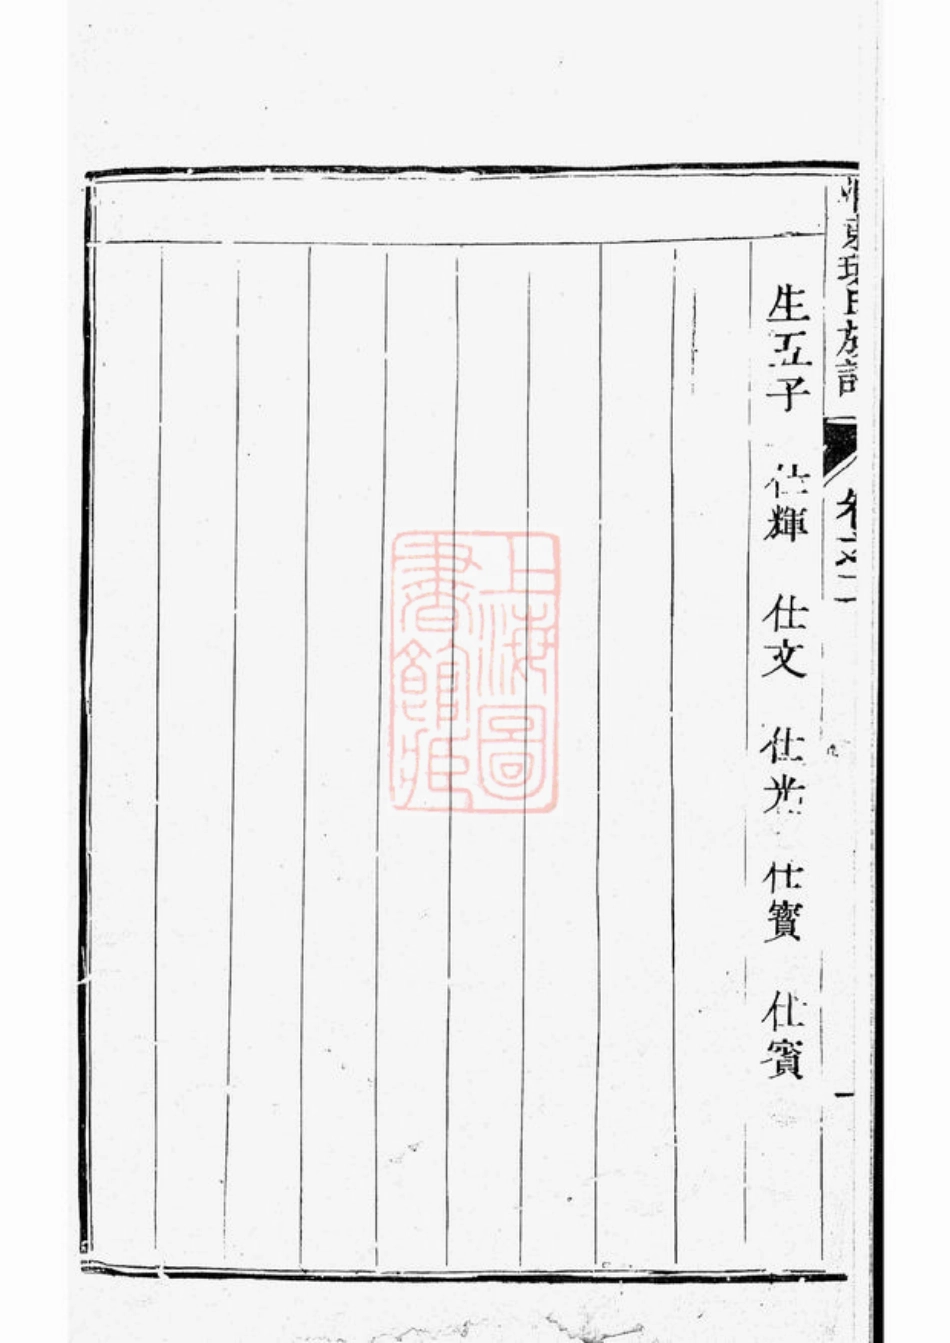 生五子 仕輝 仕文 仕光 仕寳 仕賓
東 氏族譜
卷之二
一
上海圖書館藏